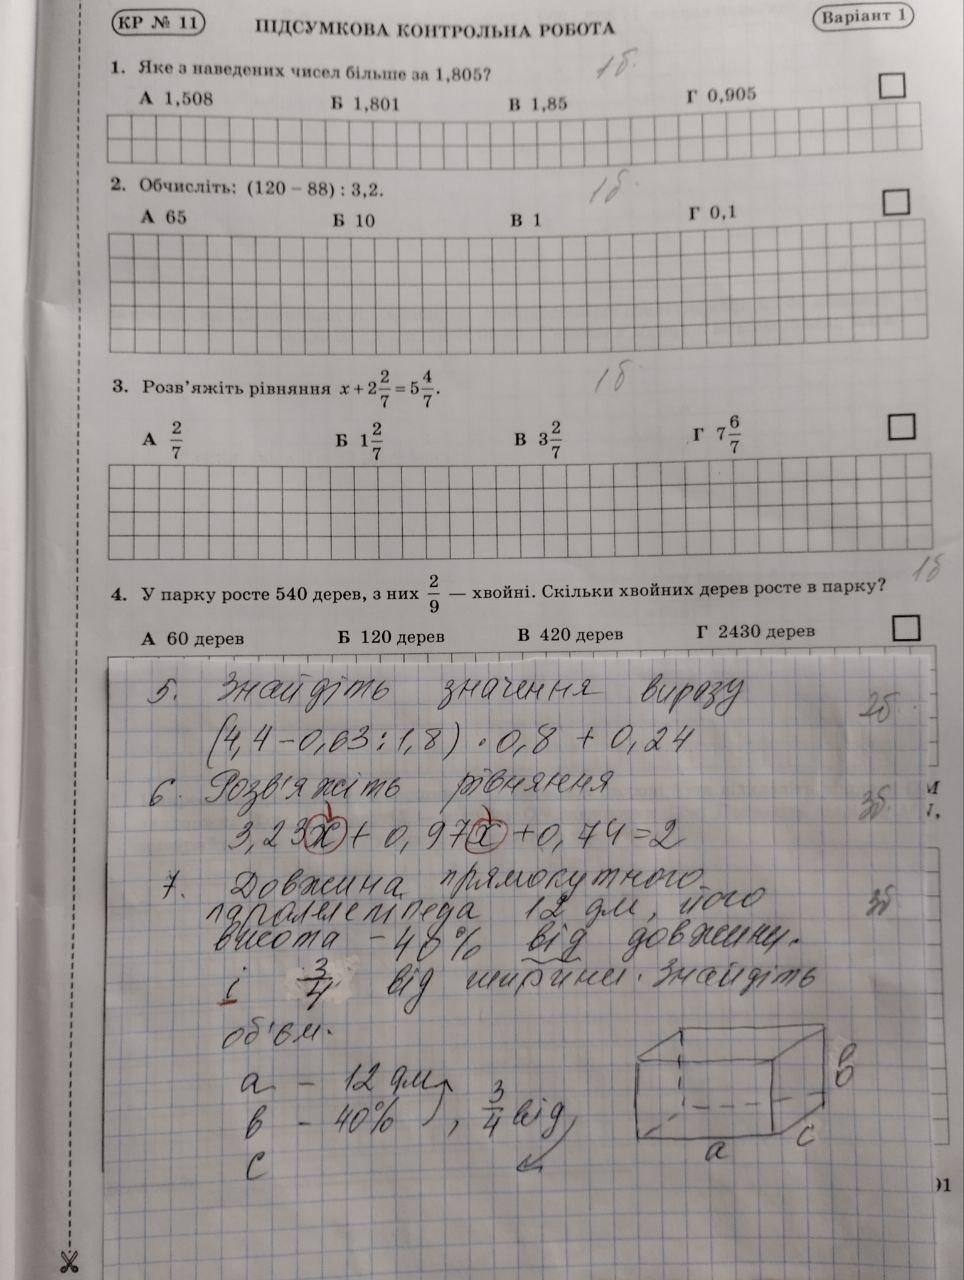 КР № 11 ПІДСУМКОВА КОНТРОЛЬНА РОБОТА Варіант 1
1. Яке з наведених чисел більше за 1,805? 1б.
А 1,508 Б 1,801 В 1,85 Г 0,905
2. Обчисліть: (120 – 88) : 3,2. 1б.
А 65 Б 10 В 1 Г 0,1
3. Розв’яжіть рівняння x + 2 2/7 = 5 4/7. 1б
А 2/7 Б 1 2/7 В 3 2/7 Г 7 6/7
4. У парку росте 540 дерев, з них 2/9 — хвойні. Скільки хвойних дерев росте в парку? 1б
А 60 дерев Б 120 дерев В 420 дерев Г 2430 дерев
5. Знайдіть значення виразу 2б.
(4,4 – 0,63 : 1,8) · 0,8 + 0,24
6. Розв'яжіть рівняння 3б.
3,23x + 0,97x + 0,74 = 2
7. Довжина прямокутного
паралелепіпеда 12 дм, його 3б
висота – 40% від довжини.
і 3/4 від ширини. Знайдіть
об'єм.
a – 12 дм
в – 40%, 3/4 від
c
в
c
a
01